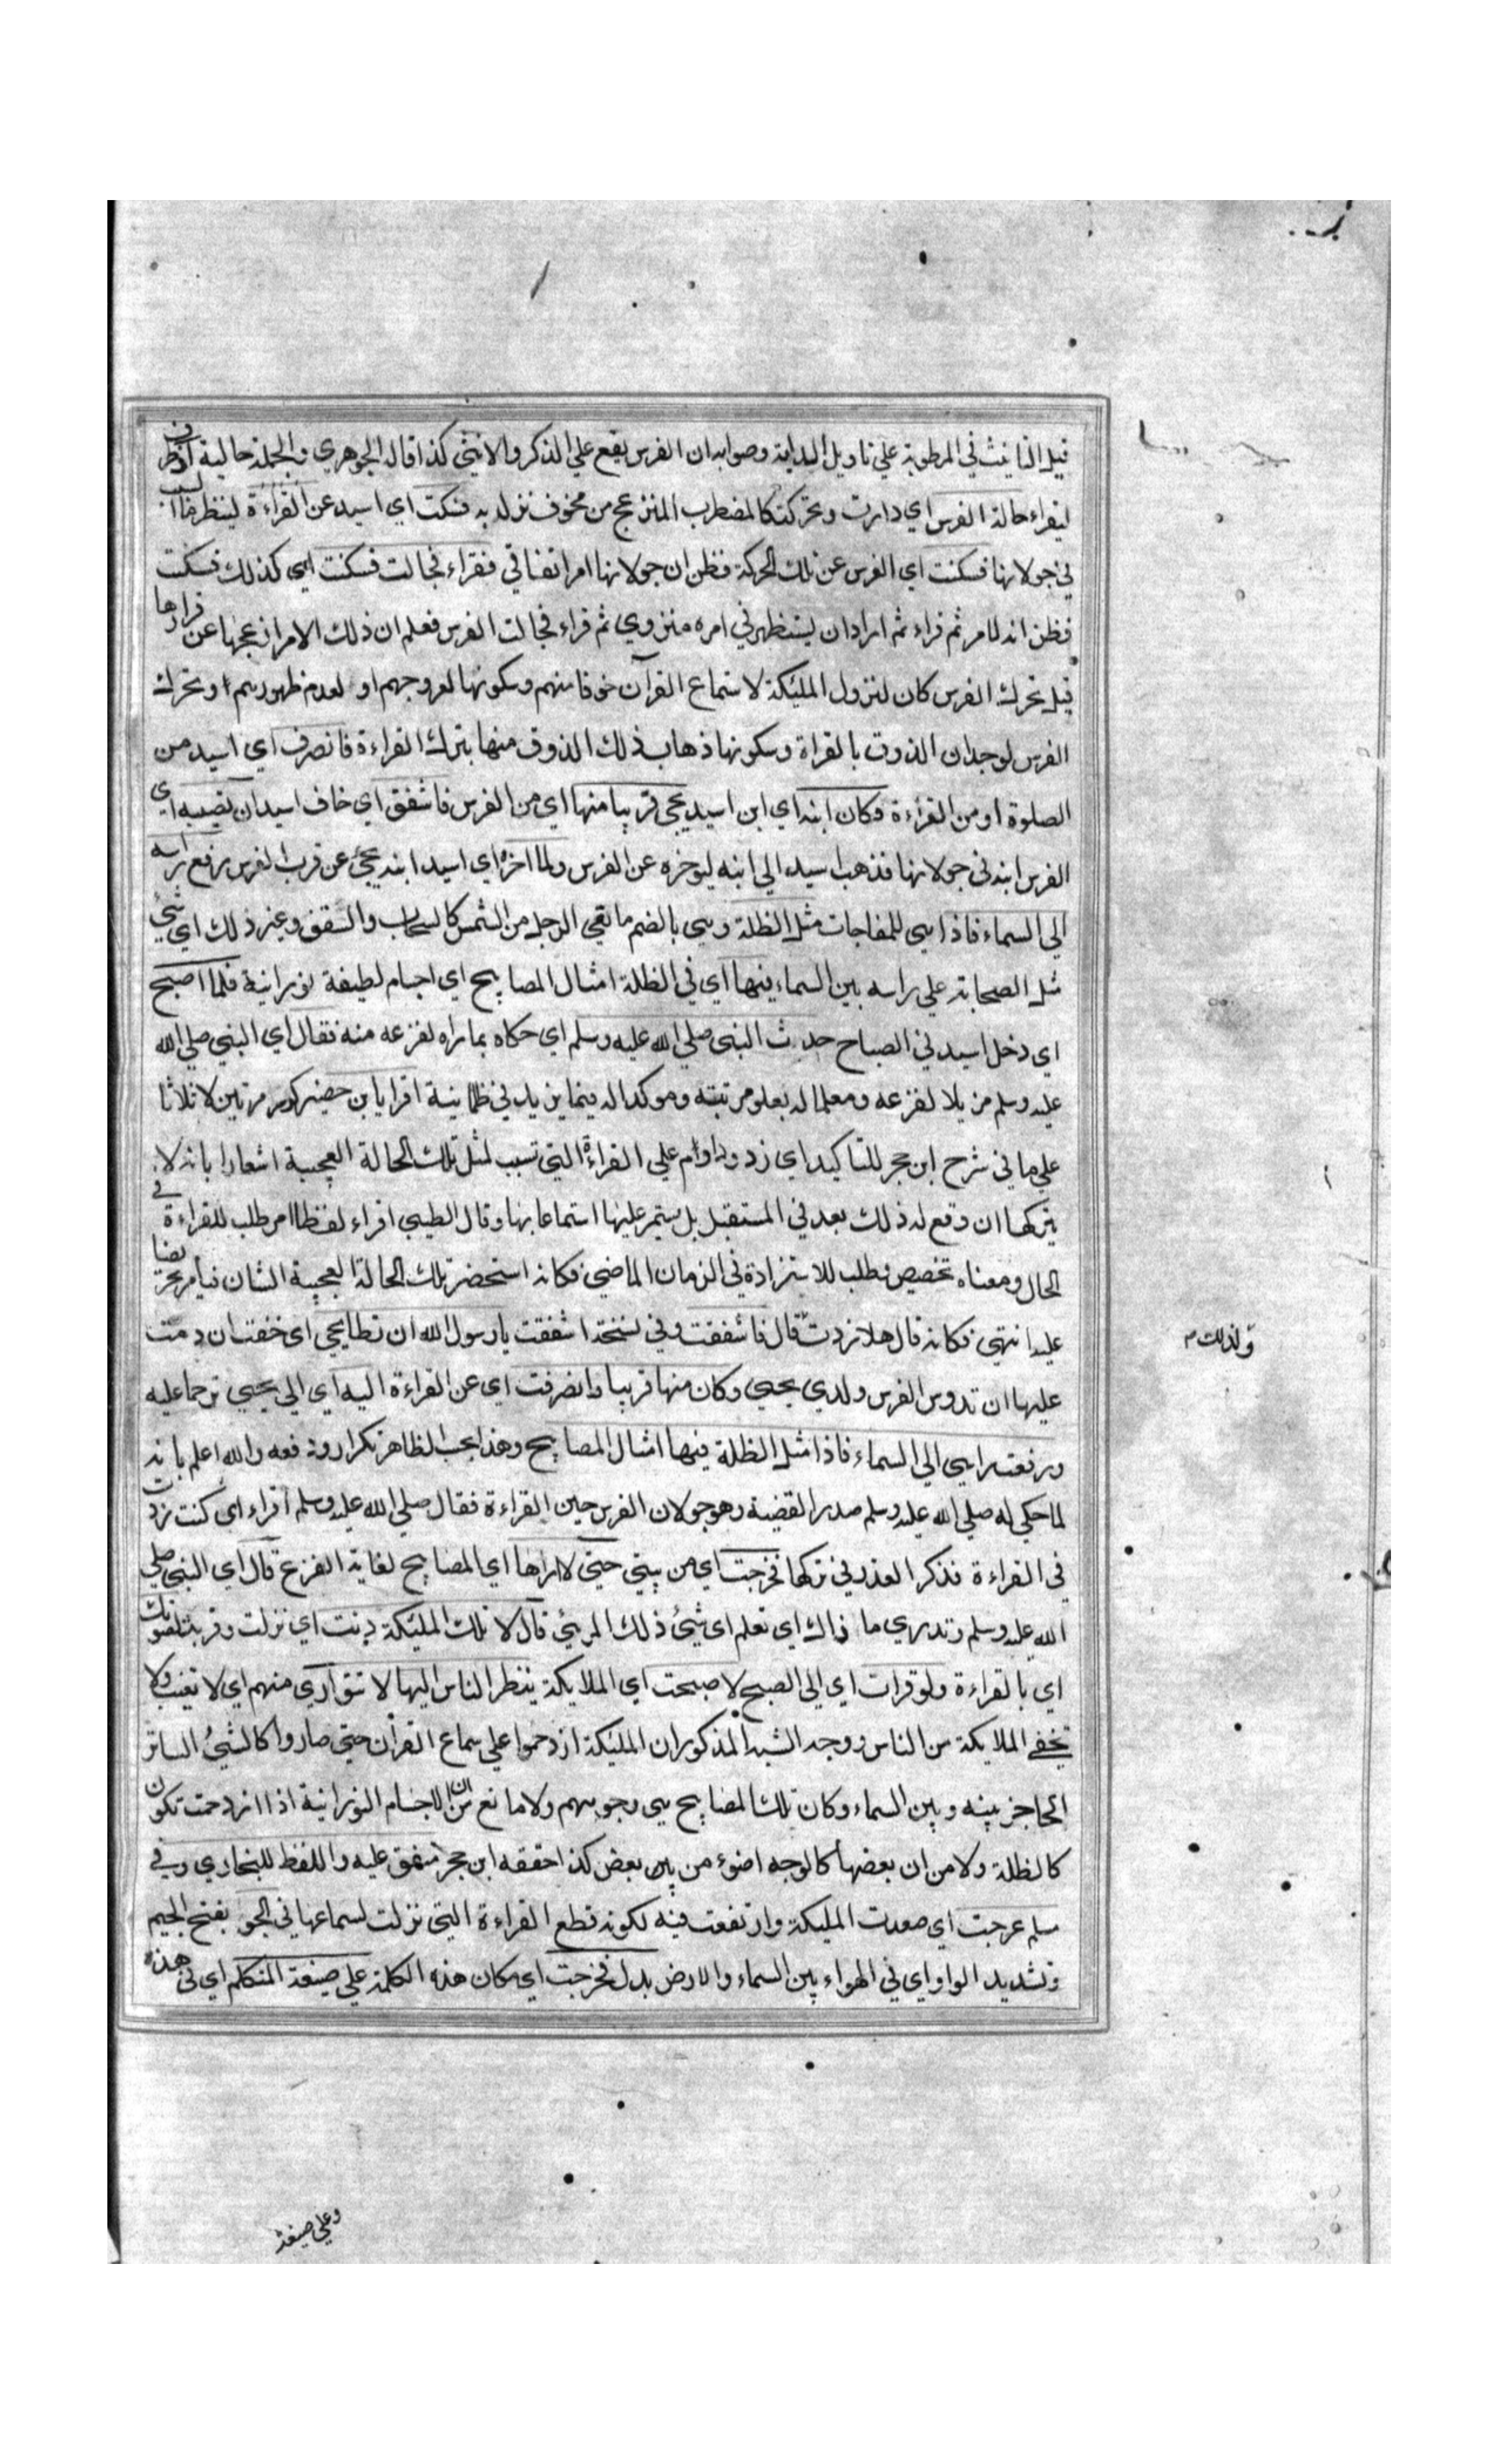 قيل التانيث في المربوطة علي تاويل الدابة وصوابه ان الفرس يقع علي الذكر والانثي كذا قاله الجوهري والجملة حالية او ظرف
ليقراء حالة الفرس اي دارت وتحركت كالمضطرب المنزعج من مخوف نزل به فسكت اي اسيد عن القراءة لينظر ما السبب
في جولانها فسكنت اي الفرس عن تلك الحركة فظن ان جولانها امر اتفاقي فقراء فجالت فسكت اي كذلك فسكنت
فظن انه لامر ثم قراء ثم اراد ان يستظهر في امره ثم قراء فجالت الفرس فعلم ان ذلك الامر ازعجها عن قرارها
قيل تحرك الفرس كان لنزول المليكة لاستماع القرآن خوفا منهم وسكونها لعروجهم او لعدم ظهورهم او تحرك
الفرس لوجدان الذوق بالقراة وسكونها ذهاب ذلك الذوق منها بترك القراءة فانصرف اي اسيد من
الصلوة او من القراءة وكان ابنه اي ابن اسيد يحي قريبا منها اي من الفرس فاشفق اي خاف اسيد ان تصيبه اي
الفرس ابنه في جولانها فذهب اسيد الي ابنه ليوخره عن الفرس ولما اخره اي اسيد ابنه يحي عن قرب الفرس رفع راسه
الي السماء فاذا هي للمفاجات مثل الظلة وهي بالضم ما يقي الرجل من الشمس كالسحاب والسقف وغير ذلك اي شي
مثل الصحابة علي راسه بين السماء فيها اي في الظلة امثال المصابيح اي اجسام لطيفة نورانية فلما اصبح
اي دخل اسيد في الصباح حدث النبي صلي الله عليه وسلم اي حكاه بما راه لفزعه منه فقال اي النبي صلي الله
عليه وسلم مزيلا لفزعه ومعلما له بعلو مرتبته وموكدا له فيما يزيد في طمانينة اقرا يا بن حضير كرر مرتين لا ثلاثا
علي ما في شرح ابن حجر للتاكيد اي زد وداوم علي القراءة التي تسبب لمثل تلك الحالة العجيبة اشعارا بانه لا
يتركها ان وقع له ذلك بعد في المستقبل بل يستمر عليها استماعا بها وقال الطيبي اقراء لفظا امر طلب للقراءة في
الحال ومعناه تخصيص وطلب للاستزادة في الزمان الماضي فكانه استحضر تلك الحالة العجيبة الشان فيامر تحريضا
عليه انتهي فكانه قال هلا زدت ولذلك قال فاشفقت وفي نسخة اشفقت يا رسول الله ان تطا يحي اي خفت ان دمت
عليها ان تدوس الفرس ولدي يحيي وكان منها قريبا وانصرفت اي عن القراءة اليه اي الي يحيي ترحما عليه
ورفعت راسي الي السماء فاذا مثل الظلة فيها امثال المصابيح وهذا بحسب الظاهر تكرار ودفعه والله اعلم بانه
لما حكي له صلي الله عليه وسلم صدر القضية وهو جولان الفرس حين القراءة فقال صلي الله عليه وسلم اقراء اي كنت زدت
في القراءة فذكر العذر في تركها فخرجت اي من بيتي حتي لا اراها اي المصابيح لغاية الفزع قال اي النبي صلي
الله عليه وسلم وتدري ما ذاك اي تعلم اي شيئ ذلك المرئي قال لا قال تلك المليكة دنت اي نزلت وقربت لصوتك
اي بالقراءة ولو قرات اي الي الصبح لاصبحت اي الملايكة ينظر الناس اليها لا تتواري منهم اي لا تغيب ولا
تخفي الملايكة من الناس ووجه الشبه المذكور ان المليكة ازدحموا علي سماع القرآن حتي صاروا كالشيئ الساتر
الحاجز بينه وبين السماء وكان تلك المصابيح هي وجوههم ولا مانع من ان الاجسام النورانية اذا ازدحمت تكون
كالظلة ولا من ان بعضها كالوجه اضوء من بعض كذا حققه ابن حجر متفق عليه واللفظ للبخاري وفي
مسلم عرجت اي صعدت المليكة وارتفعت فيه لكونه قطع القراءة التي نزلت لسماعها في الجو بفتح الجيم
وتشديد الواو اي في الهواء بين السماء والارض بدل فخرجت اي مكان هذه الكلمة علي صيغة المتكلم اي في هذه
وعلي صيغة